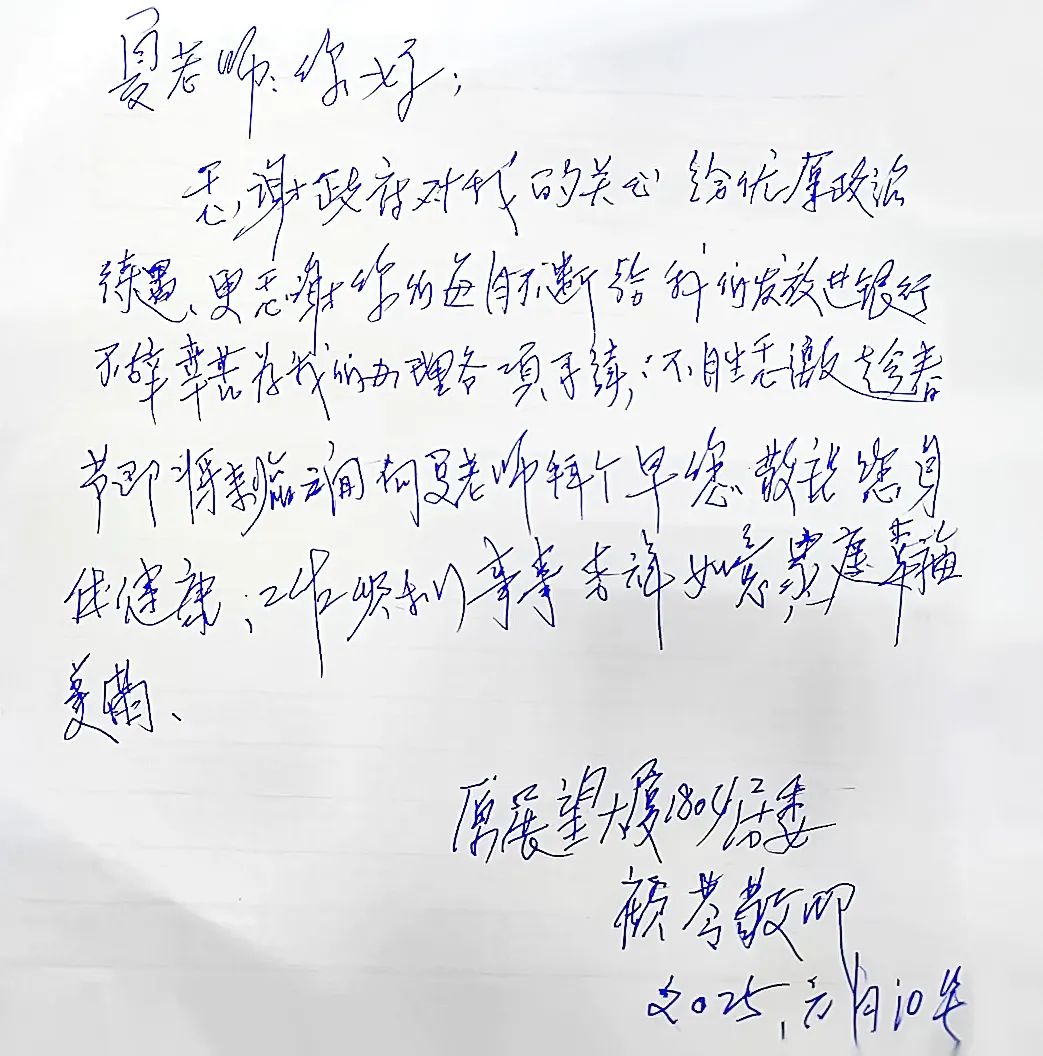 夏老师:你好;
感谢政府对我的关心给优厚政治
待遇、更感谢你们每月不断给我们发放进银行
不辞辛苦为我们办理各项手续,不胜感激趁春
节即将来临之间向夏老师拜个早 敬祝您身
体健康;工作顺利事事吉祥如意家庭幸福
美满、
原展望大厦1804居委
顾 敬
2025,元月10号